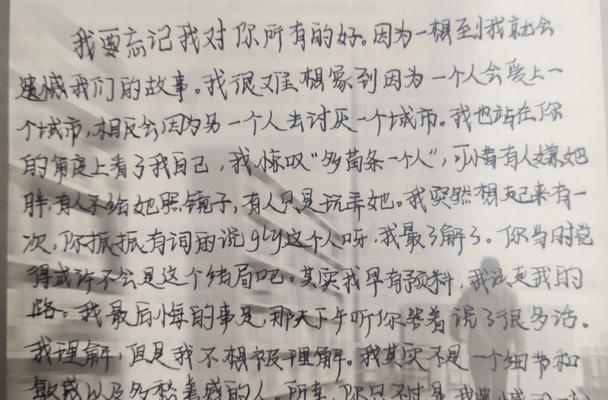 我要忘记我对你所有的好。因为一想到我就会
遗憾我们的故事。我很难想象到因为一个人会爱上一
个城市,相反会因为另一个人去讨厌一个城市。我也站在你
的角度上看了我自己,我惊叹“多苗条一个人”,可惜有人嫌她
胖,有人不给她照镜子,有人只是玩弄她。我突然想起来有一
次,你振振有词的说gly这个人呀,我最了解了。你当时觉
得或许不会是这个结局吧。其实我早有预料,我这是我的
路。我最后悔的事是,那天下午听你哭着说了很多话。
我理解,但是我不想被理解。我其实不是一个细节和
敏感以及多愁善感的人。所幸,你只不过是我遗憾